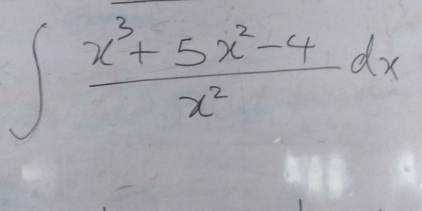 ∫ (x³ + 5x² - 4) / x² dx